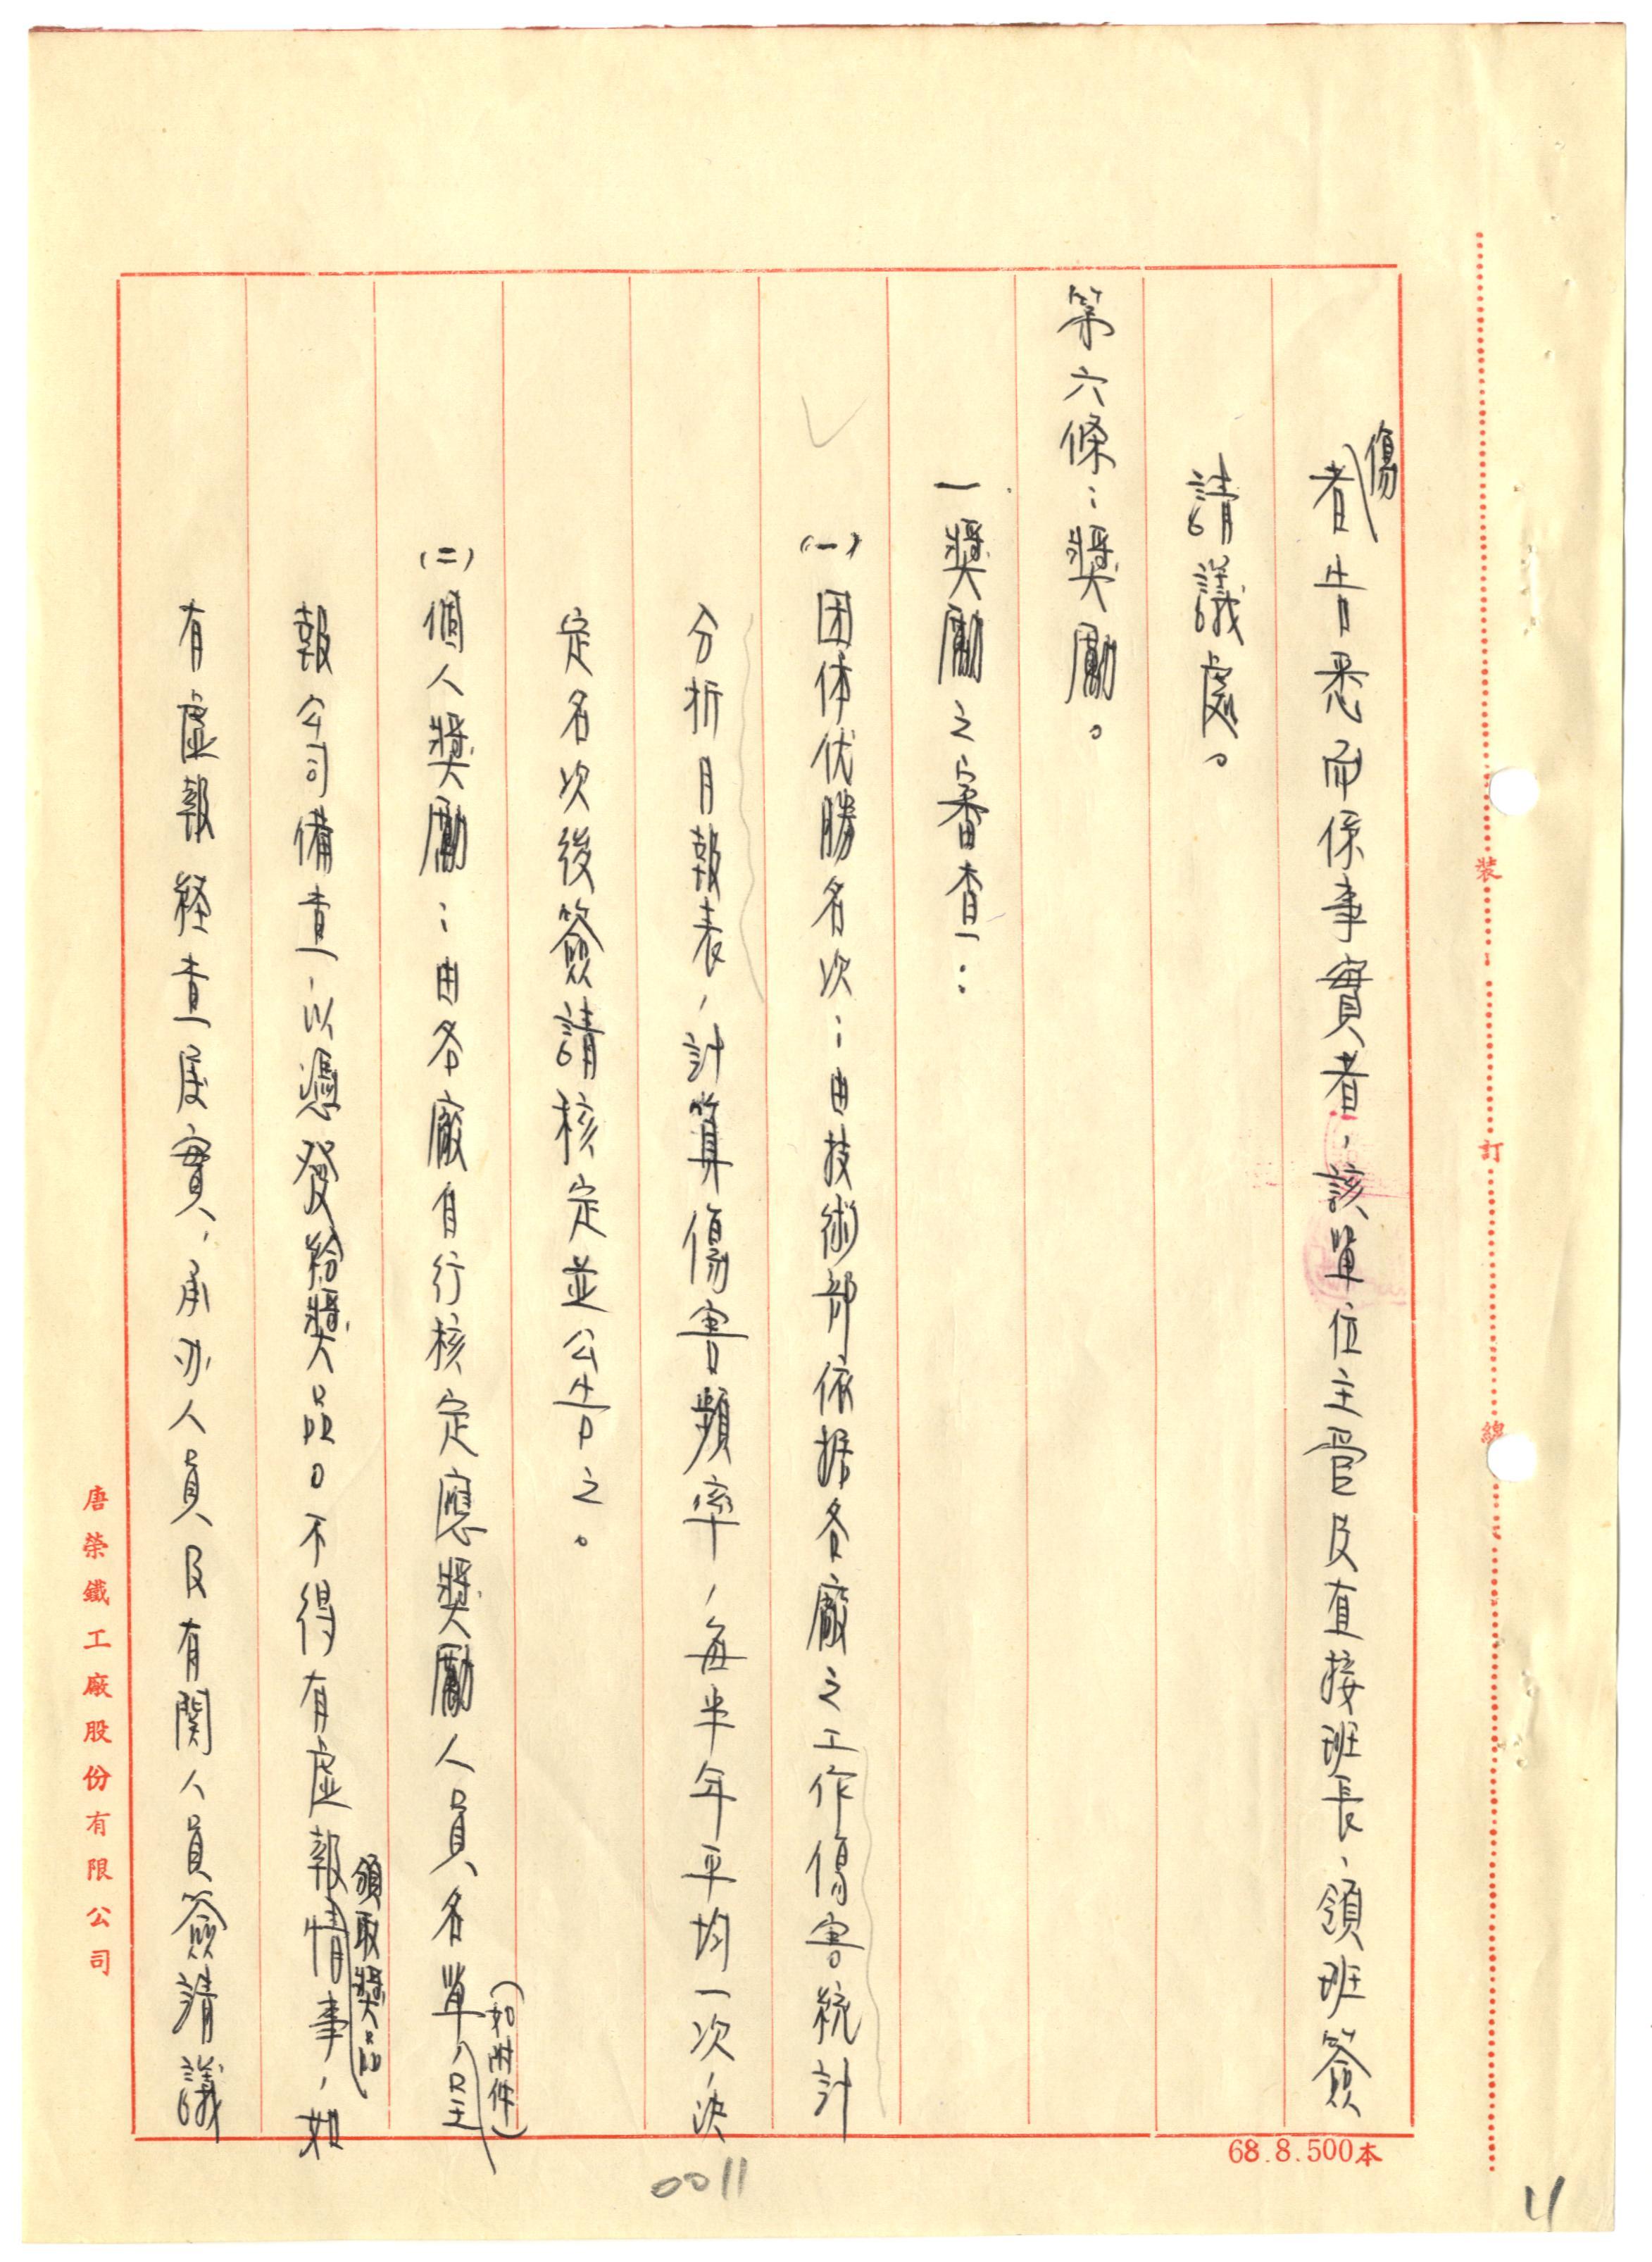 傷
者告悉而係事實者，該單位主管及直接班長、領班簽
請議處。
第六條：獎勵。
一獎勵之審查：
(一)团体优勝名次：由技術部依據各廠之工作傷害統計
分析月報表，計算傷害頻率，每半年平均一次，決
定名次後簽請核定並公告之。
(二)個人獎勵：由各廠自行核定應獎勵人員名單，呈
（如附件）
報公司備查，以憑發給獎品。不得有虛報情事，如
領取獎品
有虛報經查屬實，承办人員及有関人員簽請議
裝
訂
線
唐榮鐵工廠股份有限公司
68.8.500本
0011
4